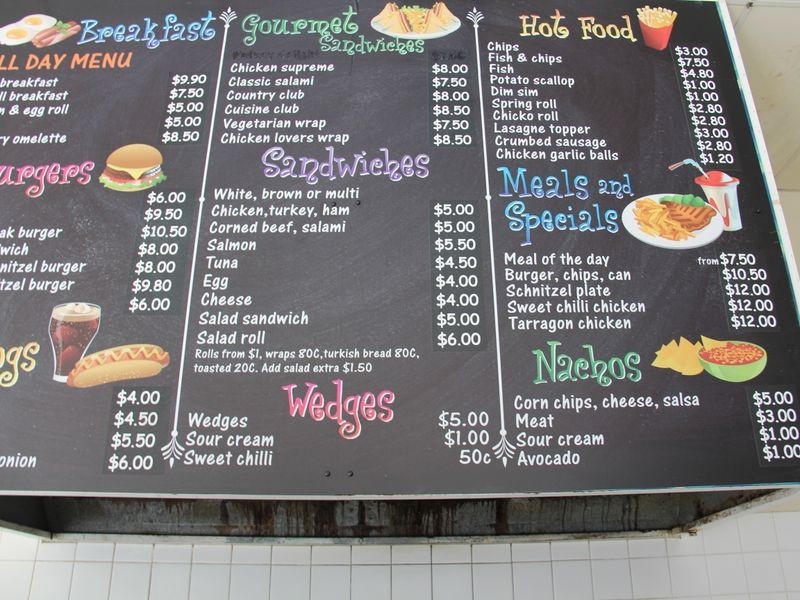 Breakfast
ALL DAY MENU
breakfast $9.90
breakfast $7.50
& egg roll $5.00
$5.00
omelette $8.50
urgers
$6.00
$9.50
burger $10.50
$8.00
burger $8.00
burger $9.80
$6.00
ogs
$4.00
$4.50
$5.50
onion $6.00
Gourmet
Sandwiches
Chicken supreme $8.00
Classic salami $7.50
Country club $8.00
Cuisine club $8.50
Vegetarian wrap $7.50
Chicken lovers wrap $8.50
Sandwiches
White, brown or multi
Chicken,turkey, ham $5.00
Corned beef, salami $5.00
Salmon $5.50
Tuna $4.50
Egg $4.00
Cheese $4.00
Salad sandwich $5.00
Salad roll $6.00
Rolls from $1, wraps 80C,turkish bread 80C,
toasted 20C. Add salad extra $1.50
Wedges
Wedges $5.00
Sour cream $1.00
Sweet chilli 50c
Hot Food
Chips $3.00
Fish & chips $7.50
Fish $4.80
Potato scallop $1.00
Dim sim $1.00
Spring roll $2.80
Chicko roll $2.80
Lasagne topper $3.00
Crumbed sausage $2.80
Chicken garlic balls $1.20
Meals and
Specials
Meal of the day from $7.50
Burger, chips, can $10.50
Schnitzel plate $12.00
Sweet chilli chicken $12.00
Tarragon chicken $12.00
Nachos
Corn chips, cheese, salsa $5.00
Meat $3.00
Sour cream $1.00
Avocado $1.00